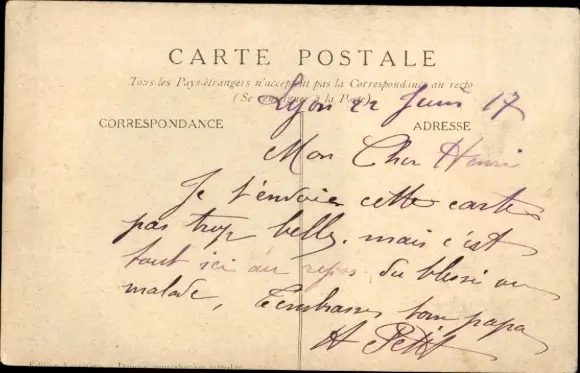 CARTE POSTALE
Tous les Pays-étrangers n'acceptent pas la Correspondance au recto
(Se renseigner à la Poste)
Lyon 22 Juin 17
CORRESPONDANCE
ADRESSE
Mon Cher Henri
Je t'envoie cette carte
pas trop belle, mais c'est
tout ici au repos du blessé ou
malade, t'embrasse ton papa
H Petit